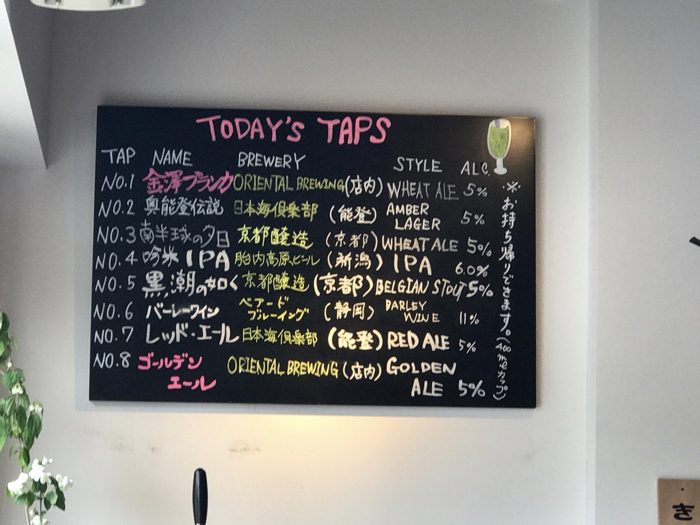 TODAY'S TAPS
TAP NAME BREWERY STYLE ALC.
NO.1 金澤ブランカ ORIENTAL BREWING (店内) WHEAT ALE 5%
NO.2 奥能登伝説 日本海倶楽部 (能登) AMBER LAGER 5%
NO.3 南半球の夕日 京都醸造 (京都) WHEAT ALE 5%
NO.4 吟米IPA 胎内高原ビール (新潟) IPA 6.0%
NO.5 黒潮の如く 京都醸造 (京都) BELGIAN STOUT 5%
NO.6 バーレーワイン ベアード ブルーイング (静岡) BARLEY WINE 11%
NO.7 レッド・エール 日本海倶楽部 (能登) RED ALE 5%
NO.8 ゴールデン エール ORIENTAL BREWING (店内) GOLDEN ALE 5%
※お持ち帰りできます。
き